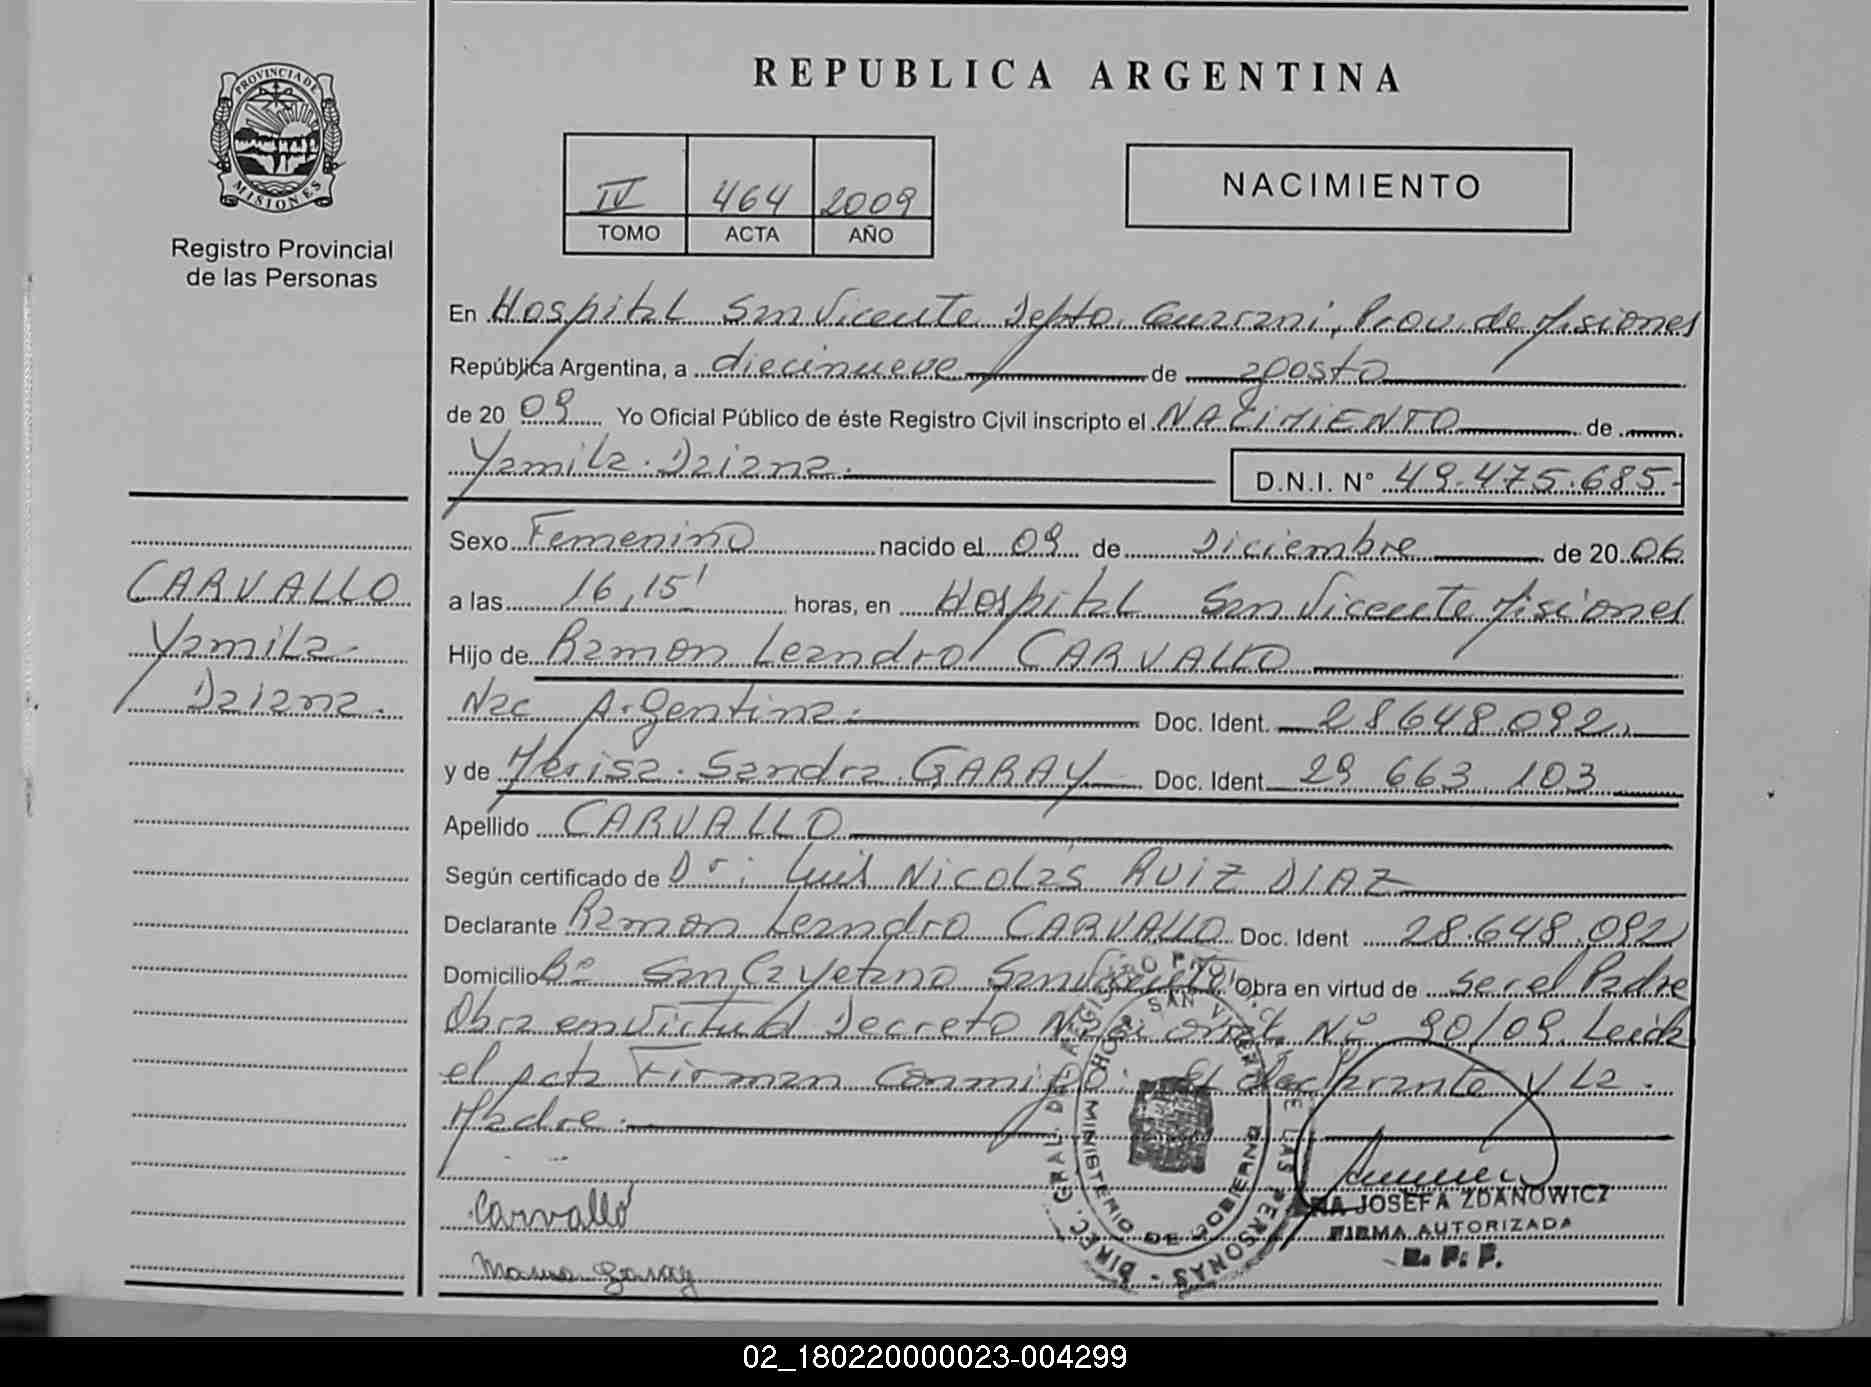 REPUBLICA ARGENTINA
PROVINCIA DE MISIONES
Registro Provincial
de las Personas
IV 464 2009
TOMO ACTA AÑO
NACIMIENTO
En Hospital San Vicente Depto. Guarani, Prov. de Misiones
República Argentina, a diecinueve de agosto
de 20 09 Yo Oficial Público de éste Registro Civil inscripto el NACIMIENTO de
Yamila Daiana.
D.N.I. N° 49.475.685-
Sexo Femenino nacido el 09 de Diciembre de 20 06
a las 16,15' horas, en Hospital San Vicente Misiones
Hijo de Ramon Leandro CARVALLO
Nac Argentina. Doc. Ident. 28.648.092
y de Marisa Sandra GARAY Doc. Ident. 29 663 103
Apellido CARVALLO
Según certificado de Dr: Luis Nicolas RUIZ DIAZ
Declarante Ramon Leandro CARVALLO Doc. Ident 28.648.092
Domicilio B° San Cayetano San Vicente Obra en virtud de ser el Padre
Obra en virtud Decreto N° 90/09. Leida
el acta Firman Conmigo: El declarante y La
Madre.
CARVALLO
Yamila
Daiana.
Carvallo
Garay
DIREC. GRAL. DE LAS PERSONAS
MINISTERIO DE GOBIERNO
SAN VICENTE
JOSEFA ZDANOWICZ
FIRMA AUTORIZADA
R. P. P.
02_180220000023-004299